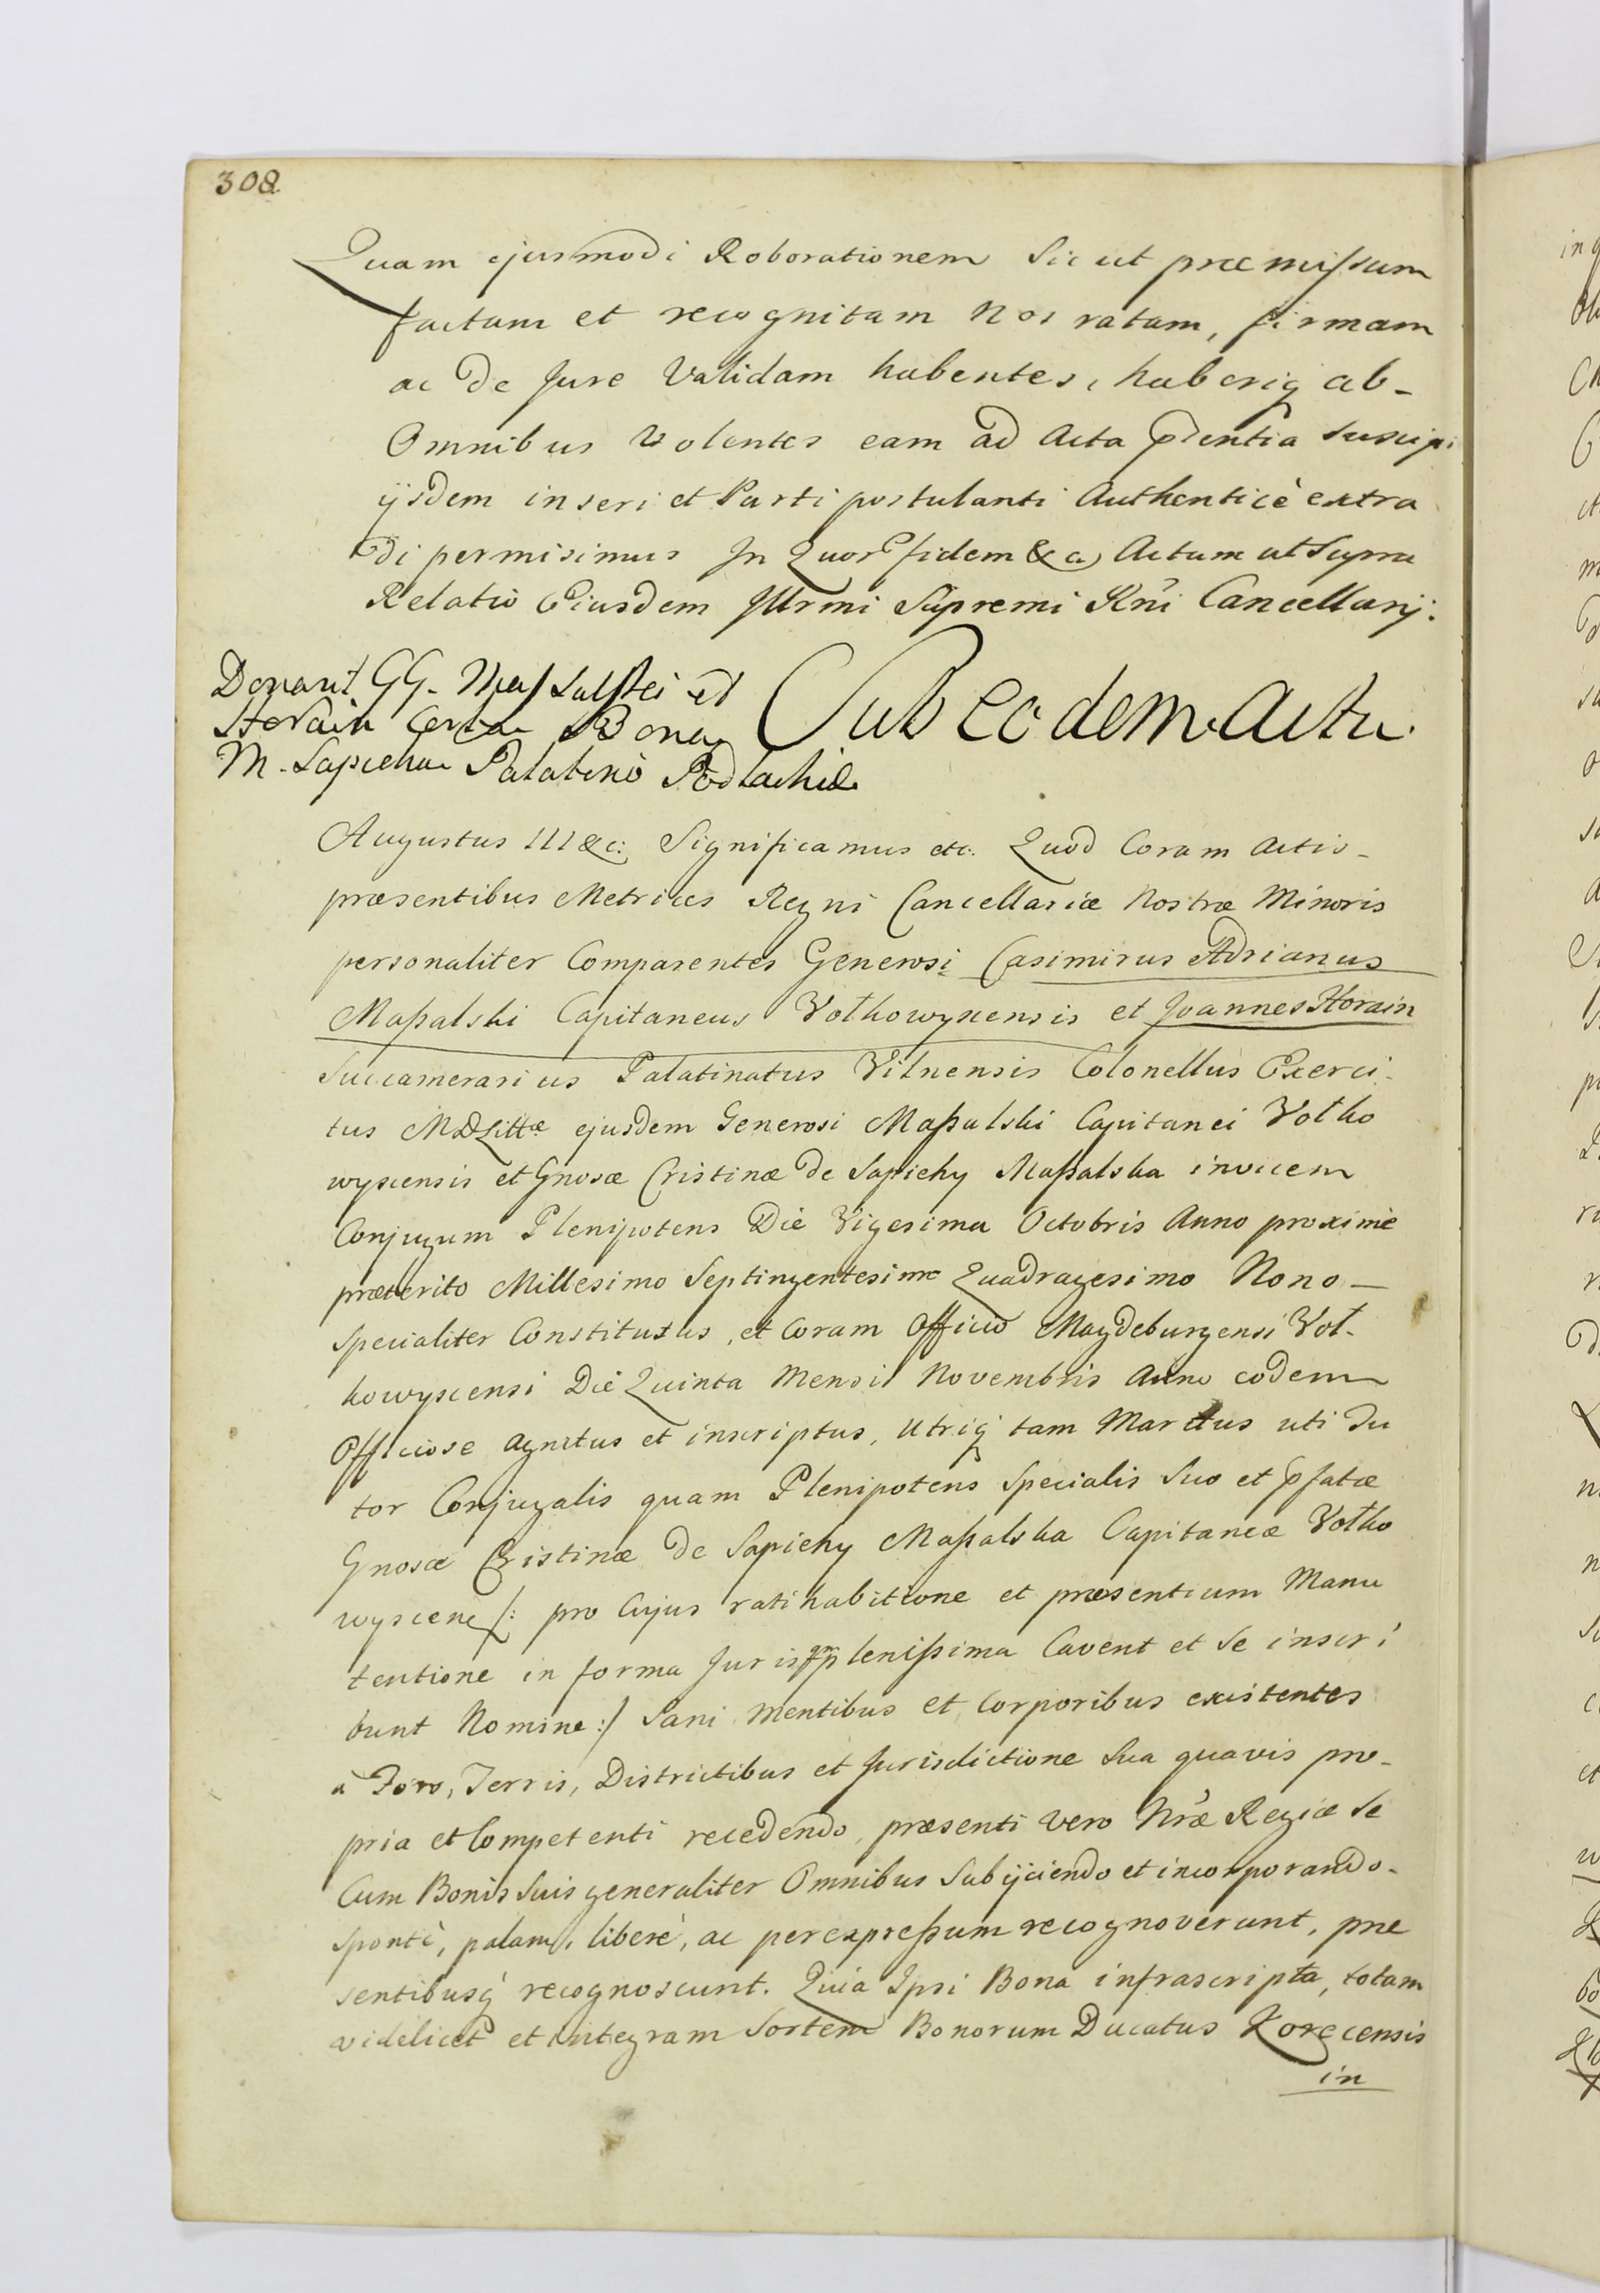 308
Quam ejusmodi Roborationem sic ut præmissum
factam et recognitam Nos ratam, firmam
ac de Jure Validam habentes, haberiq ab-
Omnibus Volentes eam ad Acta pñtia suscipi
ijsdem inseri et Parti postulanti Authenticè extra
di permisimus In Quor fidem &a Actum ut Supra
Relatio Eiusdem Illrmi Supremi Rñi Cancellarij.
Donant GG. Massalskei et
Horain Certa Bona
M. Sapieha Palatino Podlachiæ
Sub eodem Actu.
Augustus III &c: Significamus etc. Quod Coram Actis-
præsentibus Metrices Regni Cancellariæ Nostræ Minoris
personaliter Comparentes Generosi Casimirus Adrianus
Maßalski Capitaneus Vołkowyscensis et Joannes Horain
Succamerarius Palatinatus Vilnensis Colonellus Exerci-
tus MDLittæ ejusdem Generosi Maßalski Capitanei Vołko
wyscensis et Gnosæ Cristinæ de Sapiehy Maßalska invicem
Conjugum Plenipotens Die Vigesima Octobris Anno proxime
præterito Millesimo Septingentesimo Quadragesimo Nono-
specialiter Constitutus, et Coram Officio Magdeburgensi Voł-
kowyscensi Die Quinta Mensis Novembris Anno eodem
Officiose agnitus et inscriptus, utriq tam Maritus uti Tu
tor Conjugalis quam Plenipotens Specialis Suo et pfatæ
Gnosæ Cristinæ de Sapiehy Maßalska Capitaneæ Vołko
wyscen /: pro Cujus ratihabitione et præsentium Manu
tentione in forma Juris plenißima Cavent et se inscri
bunt Nomine :/ Sani Mentibus et Corporibus existentes
a Foro, Terris, Districtibus et Jurisdictione Sua quavis pro-
pria et Competenti recedendo, præsenti vero Nræ Regiæ se
Cum Bonis Suis generaliter Omnibus Subijciendo et incorporando-
sponte, palam, libere, ac per expreßum recognoverunt, præ
sentibusq recognoscunt. Quia Ipsi Bona infrascripta, totam
videlicet et integram Sortem Bonorum Ducatus Korecensis
in